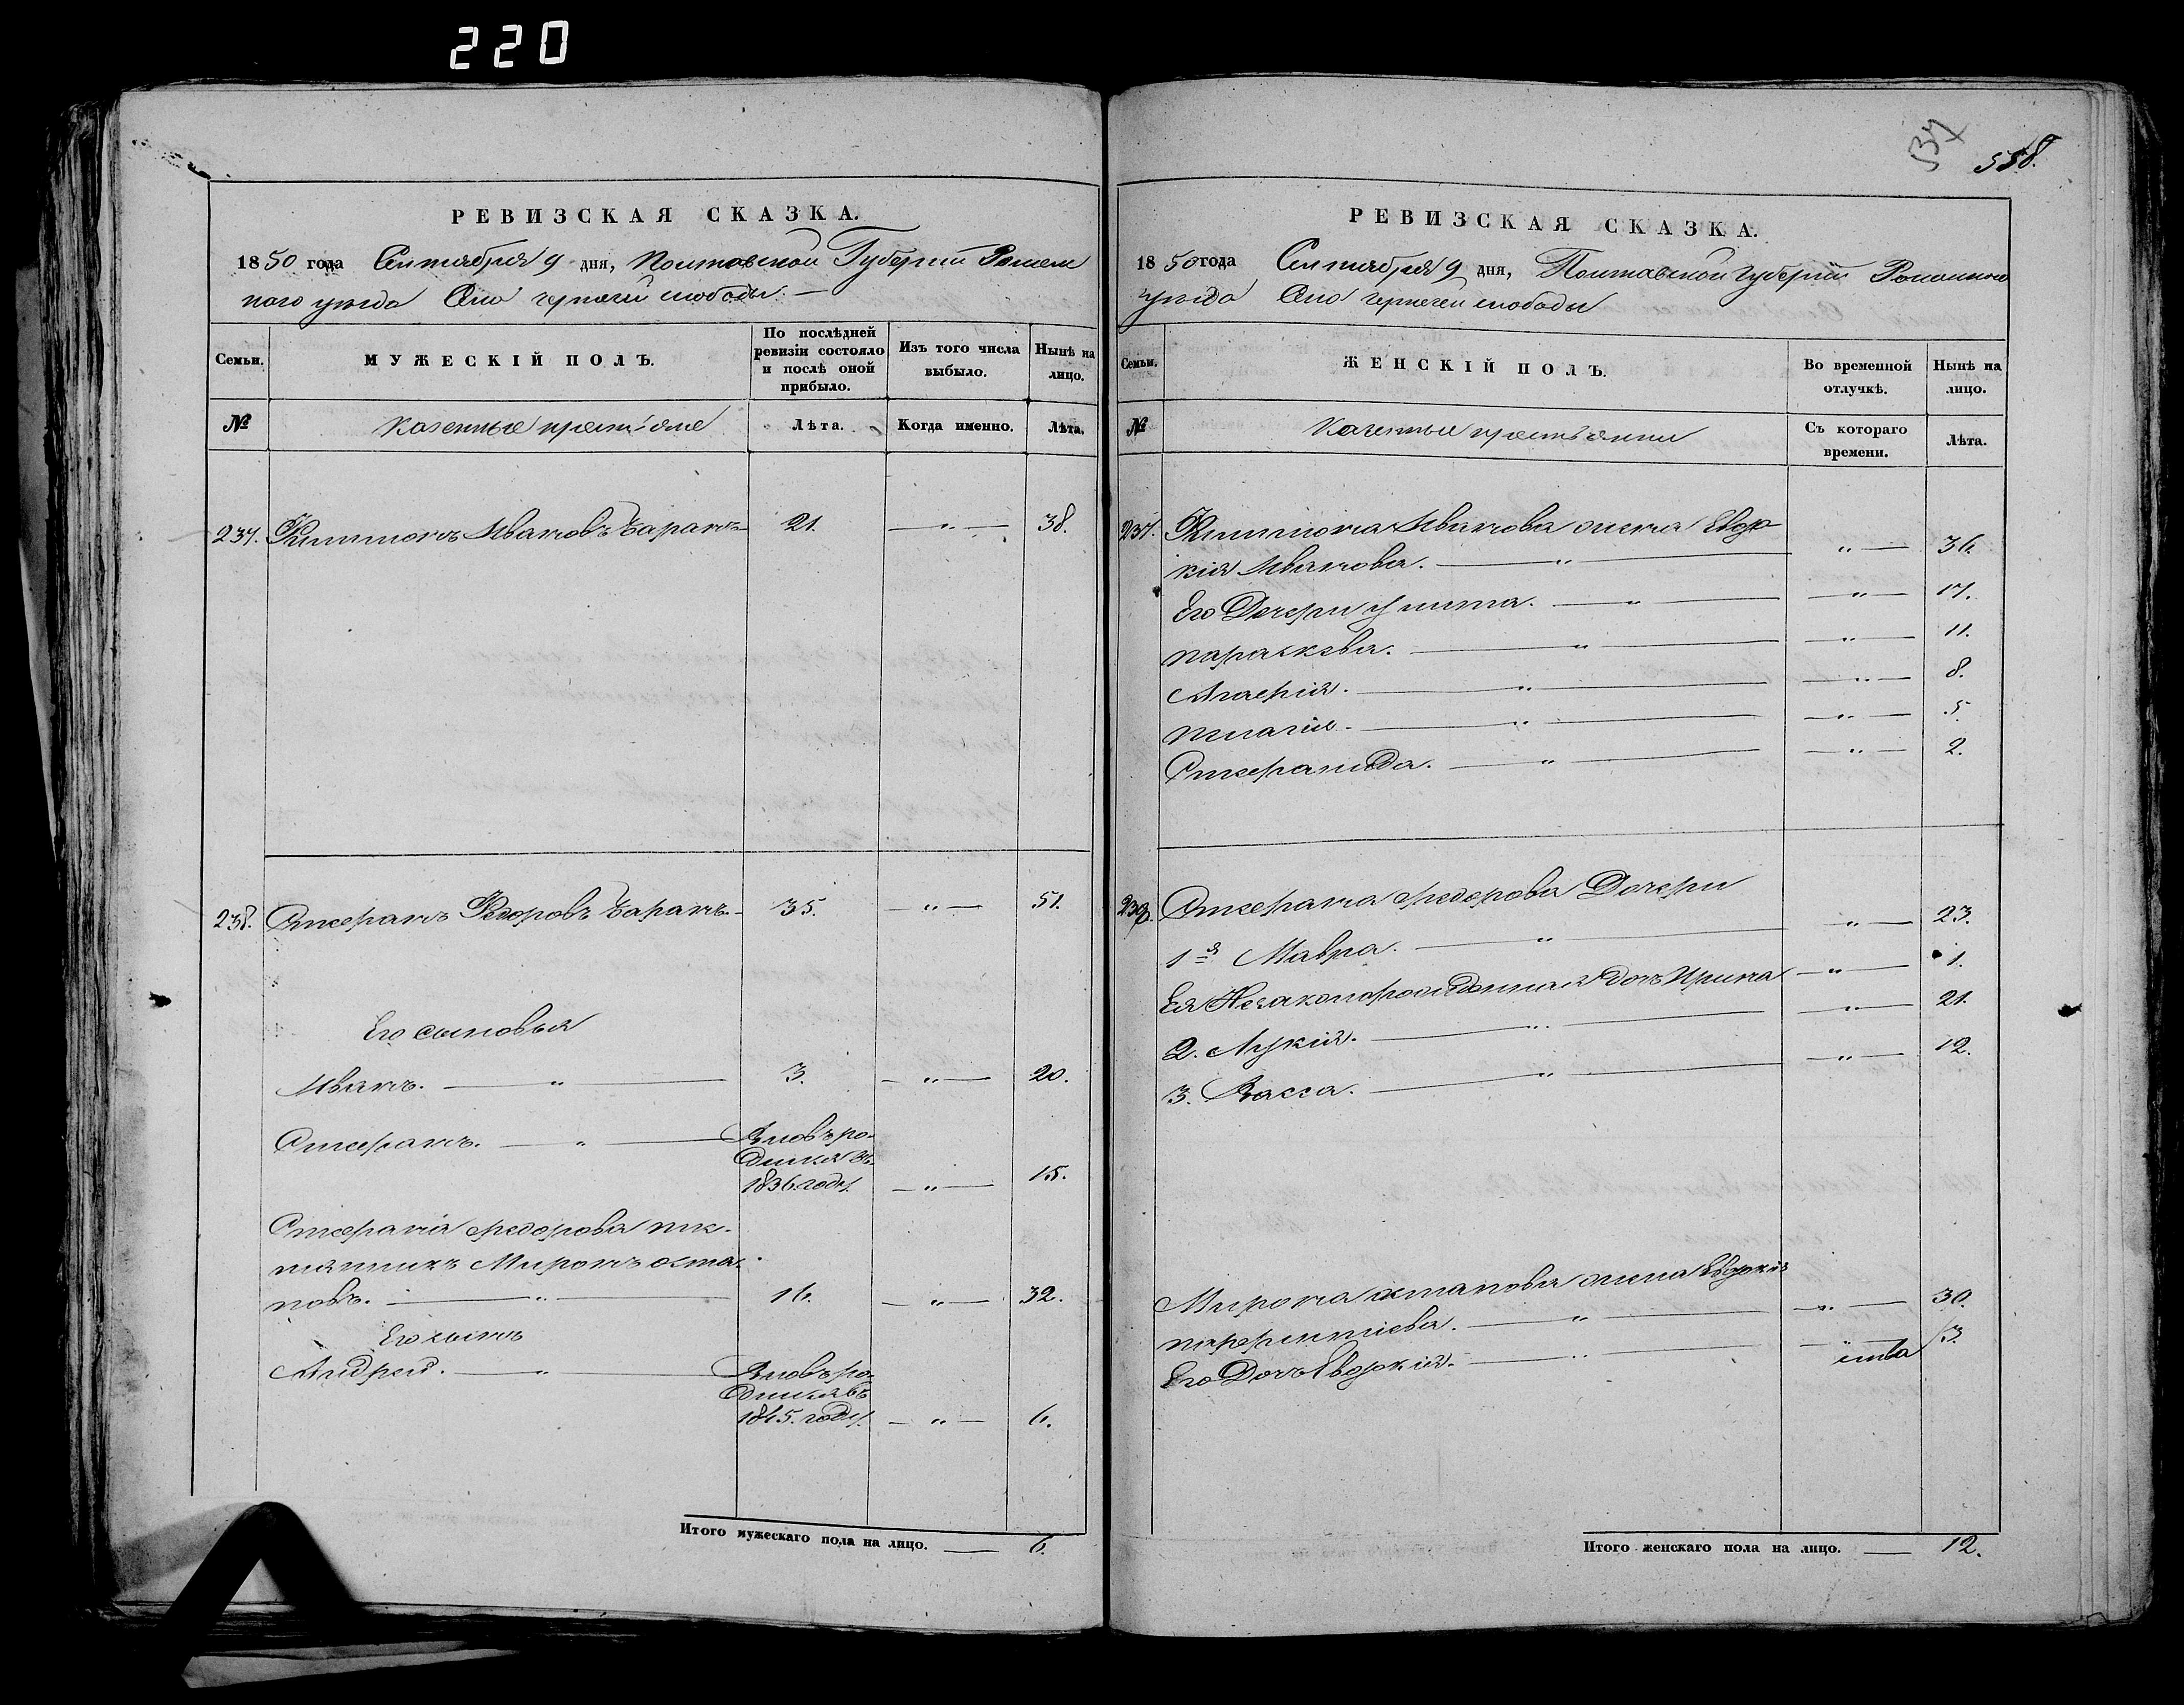 220
РЕВИЗСКАЯ СКАЗКА.
1850 года Сентября 9 дня, Полтавской Губернии Ромен
ного уезда Села чернечей слободы. —
Семьи.
МУЖЕСКІЙ ПОЛЪ.
По послѣдней
ревизіи состояло
и послѣ оной
прибыло.
Изъ того числа
выбыло.
Нынѣ на
лицо.
№
Казенные крестьяне
Лѣта.
Когда именно.
Лѣта.
237. Филимонъ Ивановъ Баранъ 21. — „ — 38.
238. Стефанъ Федоровъ Баранъ 35. — „ — 51.
Его сыновья
Иванъ. — „ — 3. — „ — 20.
Стефанъ. — „ — Вновь ро-
дился въ
1836. году — „ — 15.
Стефана Федорова пле-
мянникъ Миронъ оста-
повъ. — „ — 16. — „ — 32.
Его сынъ
Андрей. — „ — Вновь ро-
дился въ
1845. году — „ — 6.
Итого мужескаго пола на лицо. — 6.
37
558.
РЕВИЗСКАЯ СКАЗКА.
1850 года Сентября 9 дня, Полтавской Губернии Роменного
уезда Села чернечей слободы
Семьи.
ЖЕНСКІЙ ПОЛЪ.
Во временной
отлучкѣ.
Нынѣ на
лицо.
№
Казенные крестьянки
Съ котораго
времени.
Лѣта.
237. Филимона Иванова жена Евдо-
кія Иванова. — „ — „ — 36.
Его Дочери Улита. — „ — „ — 17.
параскева. — „ — „ — 11.
Гликерія. — „ — „ — 8.
пелагія — „ — „ — 5.
Стефанида. — „ — „ — 2.
238. Стефана Федорова Дочери
1я Мавра. — „ — „ — 23.
Ея Незаконорожденная дочь Ирина — „ — 1.
2. Лукія. — „ — „ — 21.
3. Васса. — „ — „ — 12.
Мирона остапова жена Евдокія
парфентіева. — „ — „ — 30.
Его Дочь Евдокія. — „ — 3.
Итого женскаго пола на лицо. — 12.